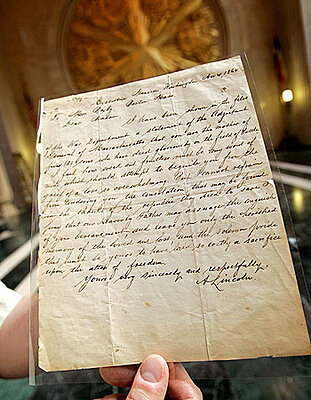 Executive Mansion, Washington, Nov 21, 1864
To Mrs Bixby, Boston Mass,
Dear Madam,
I have been shown in the files
of the War Department a statement of the Adjutant
General of Massachusetts that you are the mother
of five sons who have died gloriously on the field of battle
I feel how weak and fruitless must be any words of
mine which should attempt to beguile you from the
grief of a loss so overwhelming. But I cannot refrain
from tendering you the consolation that may be found
in the thanks of the republic they died to save. I
pray that our Heavenly Father may assuage the anguish
of your bereavement, and leave you only the cherished
memory of the loved and lost, and the solemn pride
that must be yours to have laid so costly a sacrifice
upon the altar of freedom.
Yours very sincerely and respectfully
A. Lincoln